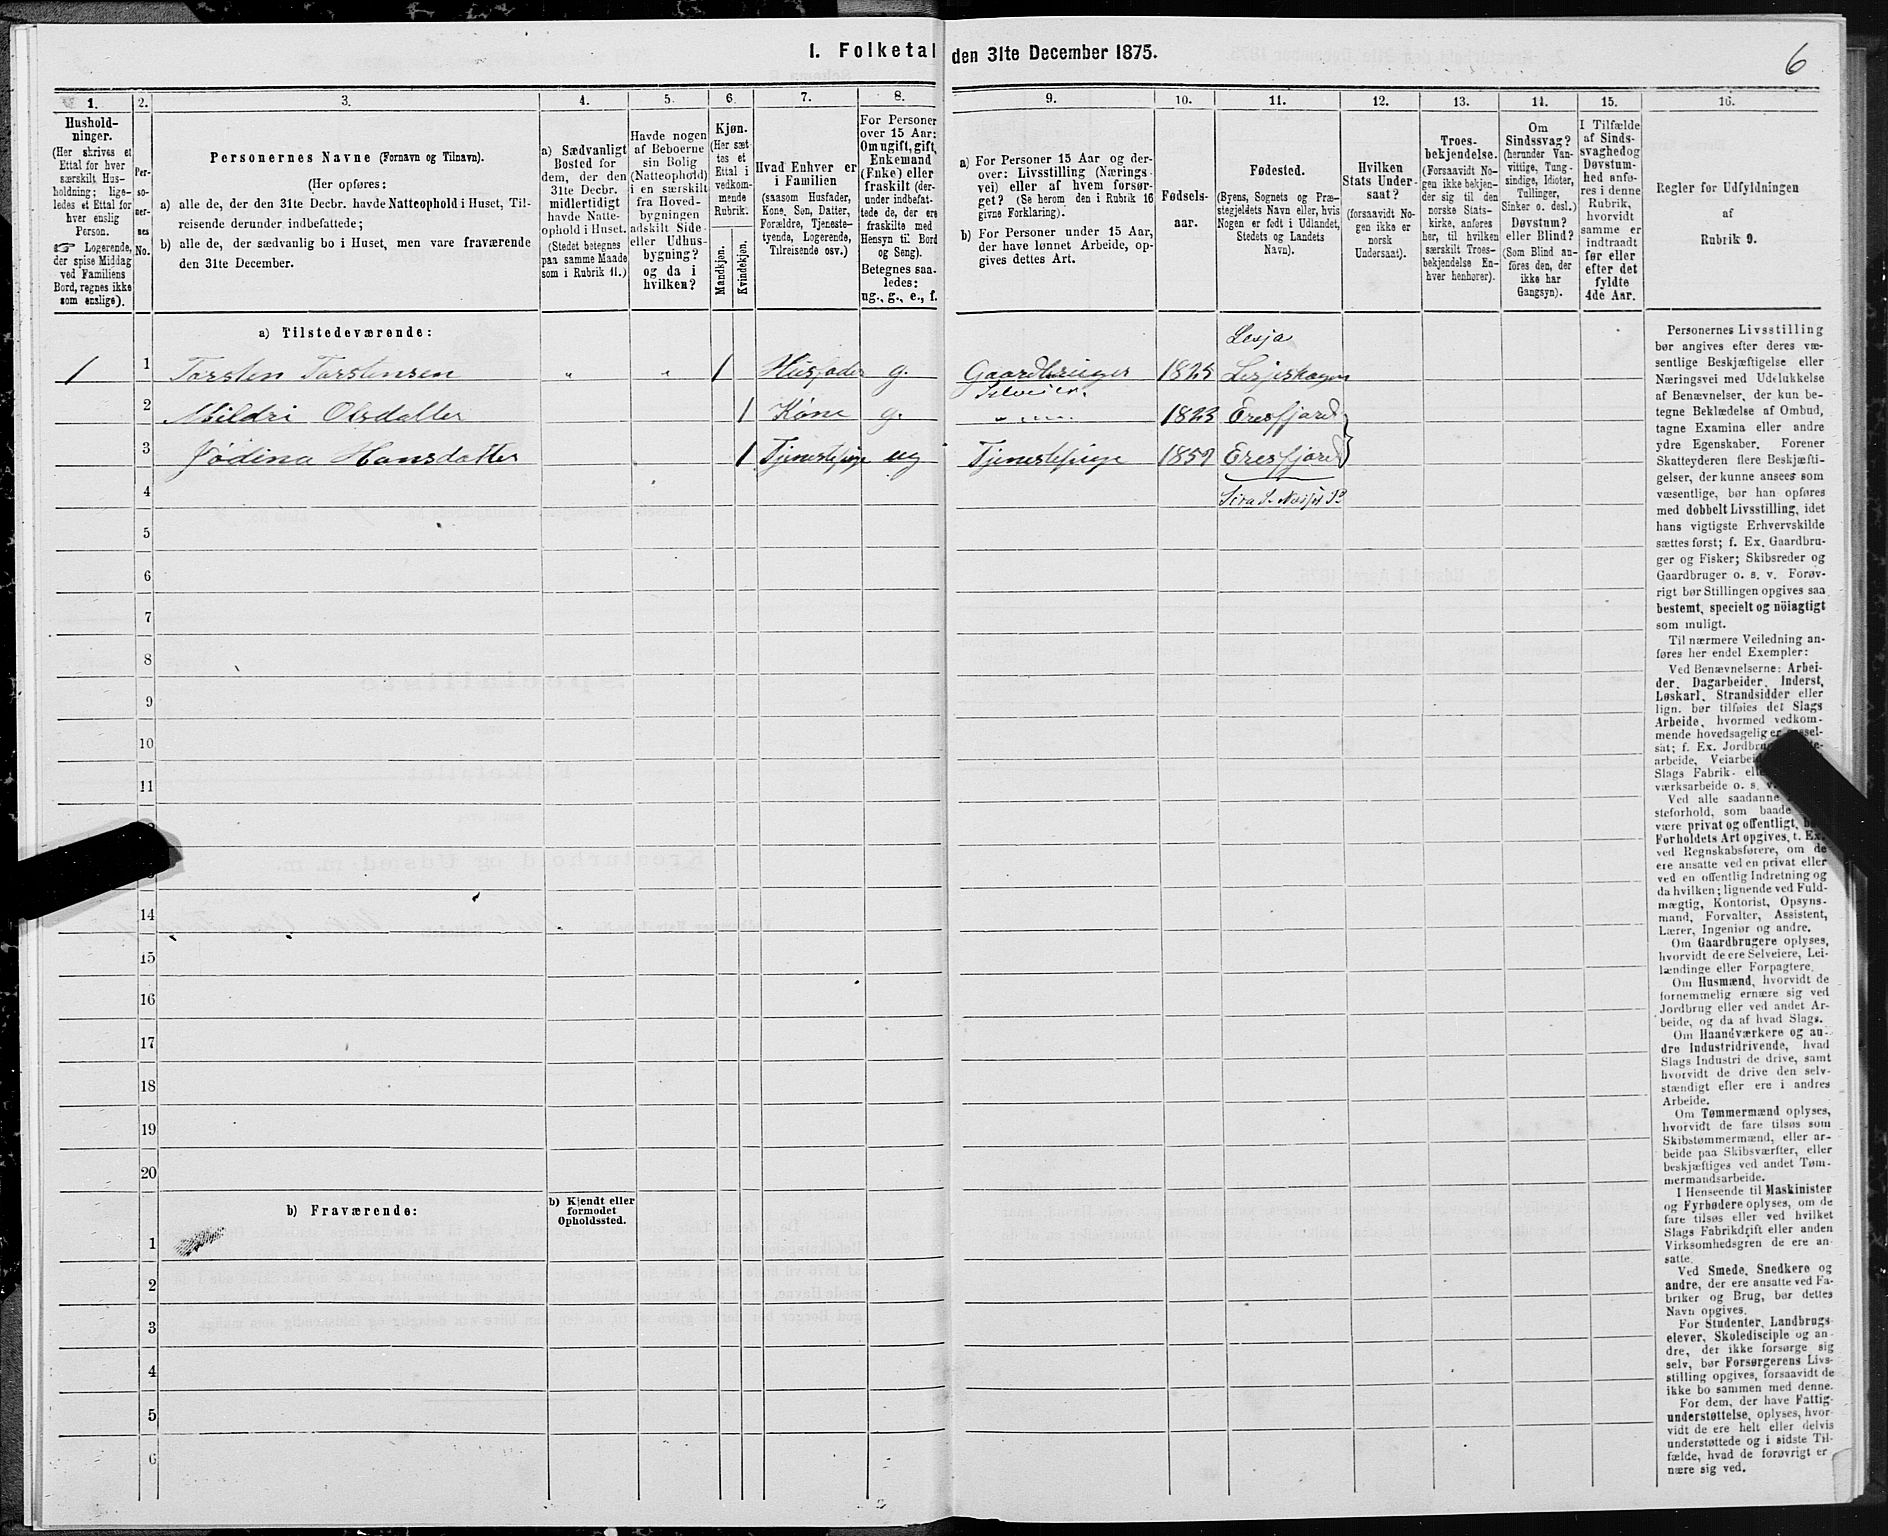 I. Folketal den 31te December 1875.
6
1. 2. 3. 4. 5. 6. 7. 8. 9. 10. 11. 12. 13. 14. 15. 16.
Hushold-
ninger.
(Her skrives et
Ettal for hver
særskilt Hus-
holdning; lige-
ledes et Ettal for
hver enslig
Person.
☞ Logerende,
der spise Middag
ved Familiens
Bord, regnes ikke
som enslige).
Per-
so-
ner-
nes
No.
Personernes Navne (Fornavn og Tilnavn).
(Her opføres:
a) alle de, der den 31te Decbr. havde Natteophold i Huset, Til-
reisende derunder indbefattede;
b) alle de, der sædvanlig bo i Huset, men vare fraværende
den 31te December.
a) Sædvanligt
Bosted for
dem, der den
31te Decbr.
midlertidigt
havde Natte-
ophold i Huset.
(Stedet betegnes
paa samme Maade
som i Rubrik 11.)
Havde nogen
af Beboerne
sin Bolig
(Natteophold)
i en særskilt
fra Hoved-
bygningen
adskilt Side-
eller Udhus-
bygning?
og da i
hvilken?
Kjøn.
(Her sæt-
tes et
Ettal i
vedkom-
mende
Rubrik.
Mandkjøn.
Kvindekjøn.
Hvad Enhver er
i Familien
(saasom Husfader,
Kone, Søn, Datter,
Forældre, Tjeneste-
tyende, Logerende,
Tilreisende osv.)
For Personer
over 15 Aar:
Om ugift, gift,
Enkemand
(Enke) eller
fraskilt (der-
under indbefat-
tede de, der ere
fraskilte med
Hensyn til Bord
og Seng).
Betegnes saa-
ledes:
ug., g., e., f.
a) For Personer 15 Aar og der-
over: Livsstilling (Nærings-
vei) eller af hvem forsør-
get? (Se herom den i Rubrik 16
givne Forklaring).
b) For Personer under 15 Aar,
der have lønnet Arbeide, op-
gives dettes Art.
Fødsels-
aar.
Fødested.
(Byens, Sognets og Præ-
stegjeldets Navn eller, hvis
Nogen er født i Udlandet,
Stedets og Landets
Navn).
Hvilken
Stats Under-
saat?
(forsaavidt No-
gen ikke er
norsk
Undersaat).
Troes-
bekjendelse.
(Forsaavidt No-
gen ikke bekjen-
der sig til den
norske Stats-
kirke, anføres
her, til hvilken
særskilt Troes-
bekjendelse En-
hver henhører).
Om
Sindssvag?
(herunder Van-
vittige, Tung-
sindige, Idioter,
Tullinger,
Sinker o. desl.)
Døvstum?
eller Blind?
(Som Blind an-
føres den, der
ikke har
Gangsyn).
I Tilfælde
af Sinds-
svaghed og
Døvstum-
hed anfø-
res i denne
Rubrik,
hvorvidt
samme er
indtraadt
før eller
efter det
fyldte
4de Aar.
Regler for Udfyldningen
af
Rubrik 9.
a) Tilstedeværende:
Lesja
1 1 Torsten Torstensen „ „ 1 Husfader g. Gaardbruger 1825 Lesjeskogen
Selveier.
2 Mildri Olsdatter 1 Kone g. „ „ 1823 Eresfjord
3 Jødina Hansdatter 1 Tjenestepige ug Tjenestepige 1857 Eresfjord
4
5
6
7
8
9
10
11
14
15
16
17
18
19
20
b) Fraværende:
b) Kjendt eller
formodet
Opholdssted.
1
2
3
4
5
6
Personernes Livsstilling
bør angives efter deres væ-
sentlige Beskjæftigelse eller
Næringsvei med Udelukkelse
af Benævnelser, der kun be-
tegne Beklædelse af Ombud,
tagne Examina eller andre
ydre Egenskaber. Forener
Skatteyderen flere Beskjæfti-
gelser, der kunne ansees som
væsentlige, bør han opføres
med dobbelt Livsstilling, idet
hans vigtigste Erhvervskilde
sættes først; f. Ex. Gaardbru-
ger og Fisker; Skibsreder og
Gaardbruger o. s. v. Forøv-
rigt bør Stillingen opgives saa
bestemt, specielt og nöiagtigt
som muligt.
Til nærmere Veiledning an-
føres her endel Exempler:
Ved Benævnelserne: Arbei-
der, Dagarbeider, Inderst,
Løskarl, Strandsidder eller
lign. bør tilføies det Slags
Arbeide, hvormed vedkom-
mende hovedsagelig er
sat; f. Ex.
arbeide,
Slags Fabrik-
værksarbeide o. s. v.
Ved alle saadanne
steforhold, som baade
være privat og offentligt,
Forholdets Art opgives, t. Ex.
ved Regnskabsførere, om de
ere ansatte ved en privat eller
ved en offentlig Indretning og
da hvilken; lignende ved Fuld-
mægtig, Kontorist, Opsyns-
mand, Forvalter, Assistent,
Lærer, Ingeniør og andre.
Om Gaardbrugere oplyses,
hvorvidt de ere Selveiere, Lei-
lændinge eller Forpagtere.
Om Husmænd, hvorvidt de
fornemmelig ernære sig ved
Jordbrug eller ved andet Ar-
beide, og da af hvad Slags.
Om Haandværkere og an-
dre Industridrivende, hvad
Slags Industri de drive, samt
hvorvidt de drive den selv-
stændigt eller ere i andres
Arbeide.
Om Tømmermænd oplyses,
hvorvidt de fare tilsøs som
Skibstømmermænd, eller ar-
beide paa Skibsværfter, eller
beskjæftiges ved andet Tøm-
mermandsarbeide.
I Henseende til Maskinister
og Fyrbødere oplyses, om de
fare tilsøs eller ved hvilket
Slags Fabrikdrift eller anden
Virksomhedsgren de ere an-
satte.
Ved Smede, Snedkere og
andre, der ere ansatte ved Fa-
briker og Brug, bør dettes
Navn opgives.
For Studenter, Landbrugs-
elever, Skoledisciple og an-
dre, der ikke forsørge sig
selv, bør Forsørgerens Livs-
stilling opgives, forsaavidt de
ikke bo sammen med denne.
For dem, der have Fattig-
understøttelse, oplyses, hvor-
vidt de ere helt eller delvis
understøttede og i sidste Til-
fælde, hvad de forøvrigt er-
nære sig ved.